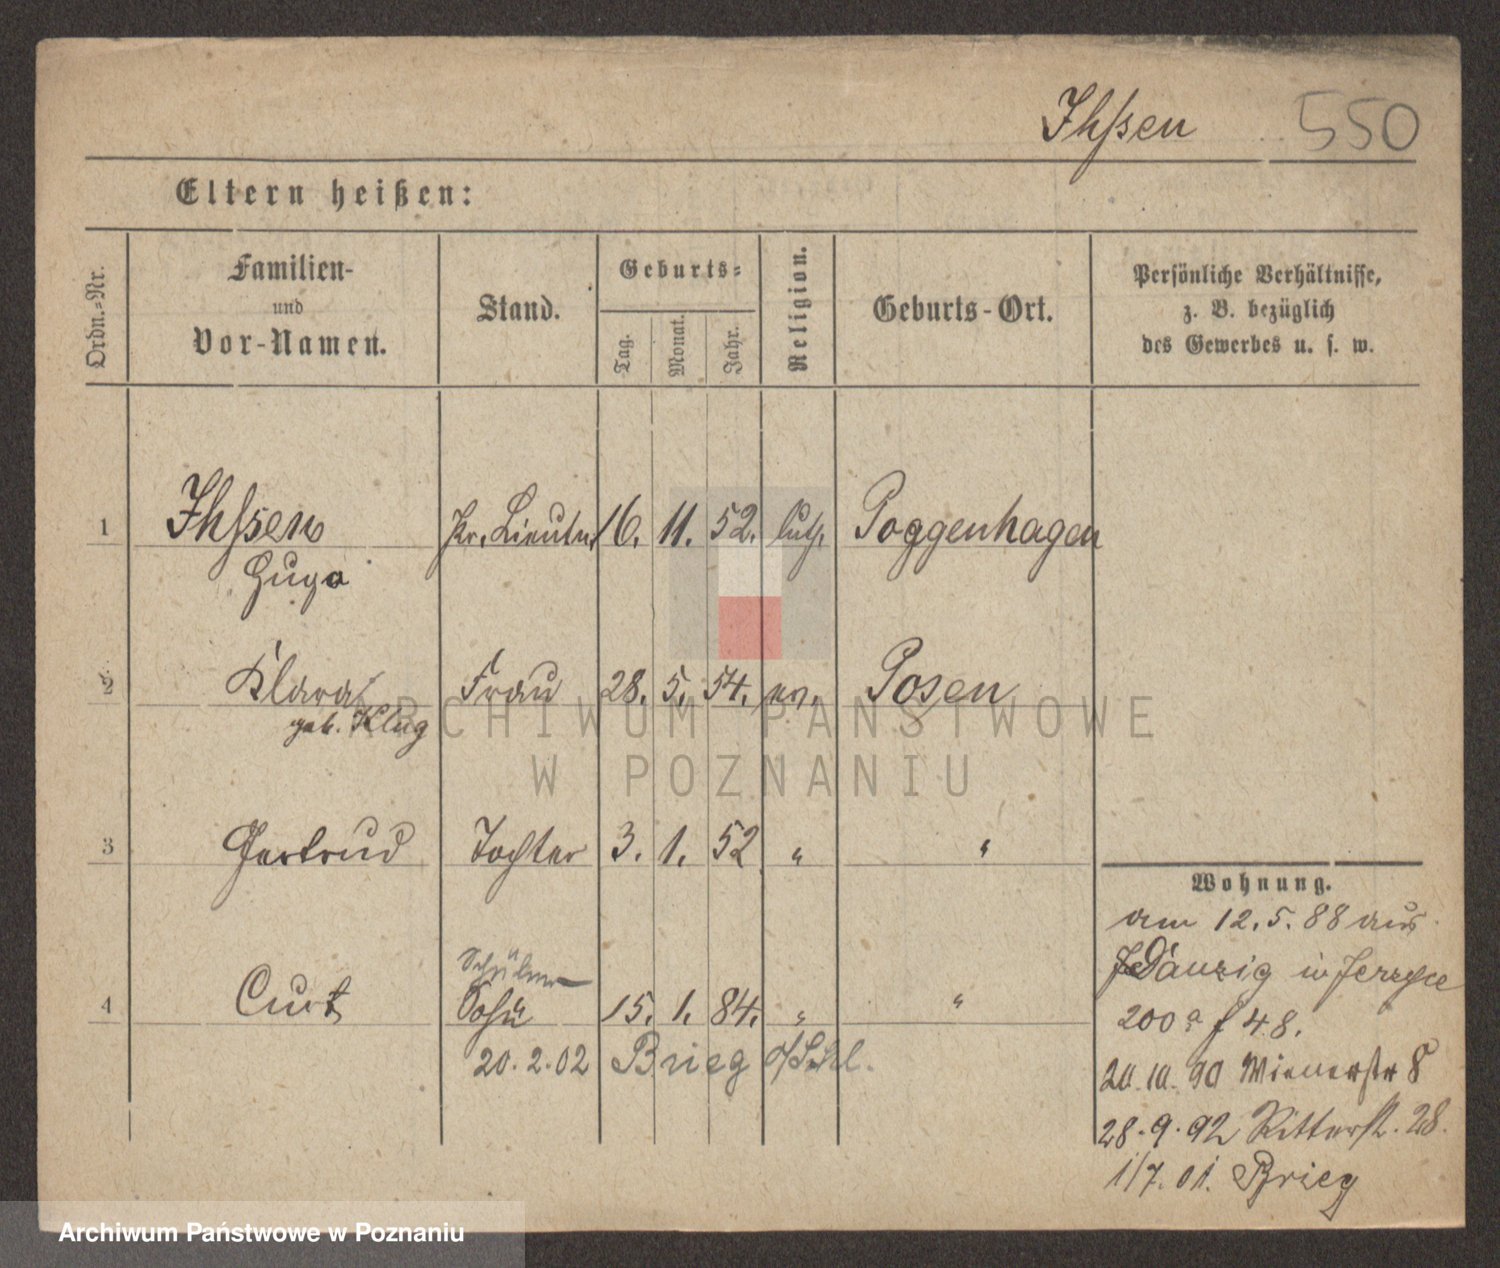 Ihssen 550
Eltern heißen:
Ordn.-Nr.
Familien-
und
Vor-Namen.
Stand.
Geburts-
Tag.
Monat.
Jahr.
Religion.
Geburts-Ort.
Persönliche Verhältnisse,
z. B. bezüglich
des Gewerbes u. s. w.
1 Ihssen Pr. Lieutn. 16. 11. 52. luth. Poggenhagen
Hugo
2 Klara Frau 28. 5. 54. ev. Posen
geb. Klug
3 Gertrud Tochter 3. 1. 52 " "
Schüler
4 Curt Sohn 15. 1. 84. " "
20.2.02 Brieg
Wohnung.
am 12.5.88 aus
Danzig in Jerzyce
200a f 48.
20.10.90 Wienerstr 8
28.9.92 Ritterstr. 28.
1/7.01. Brieg
ARCHIWUM PAŃSTWOWE
W POZNANIU
Archiwum Państwowe w Poznaniu